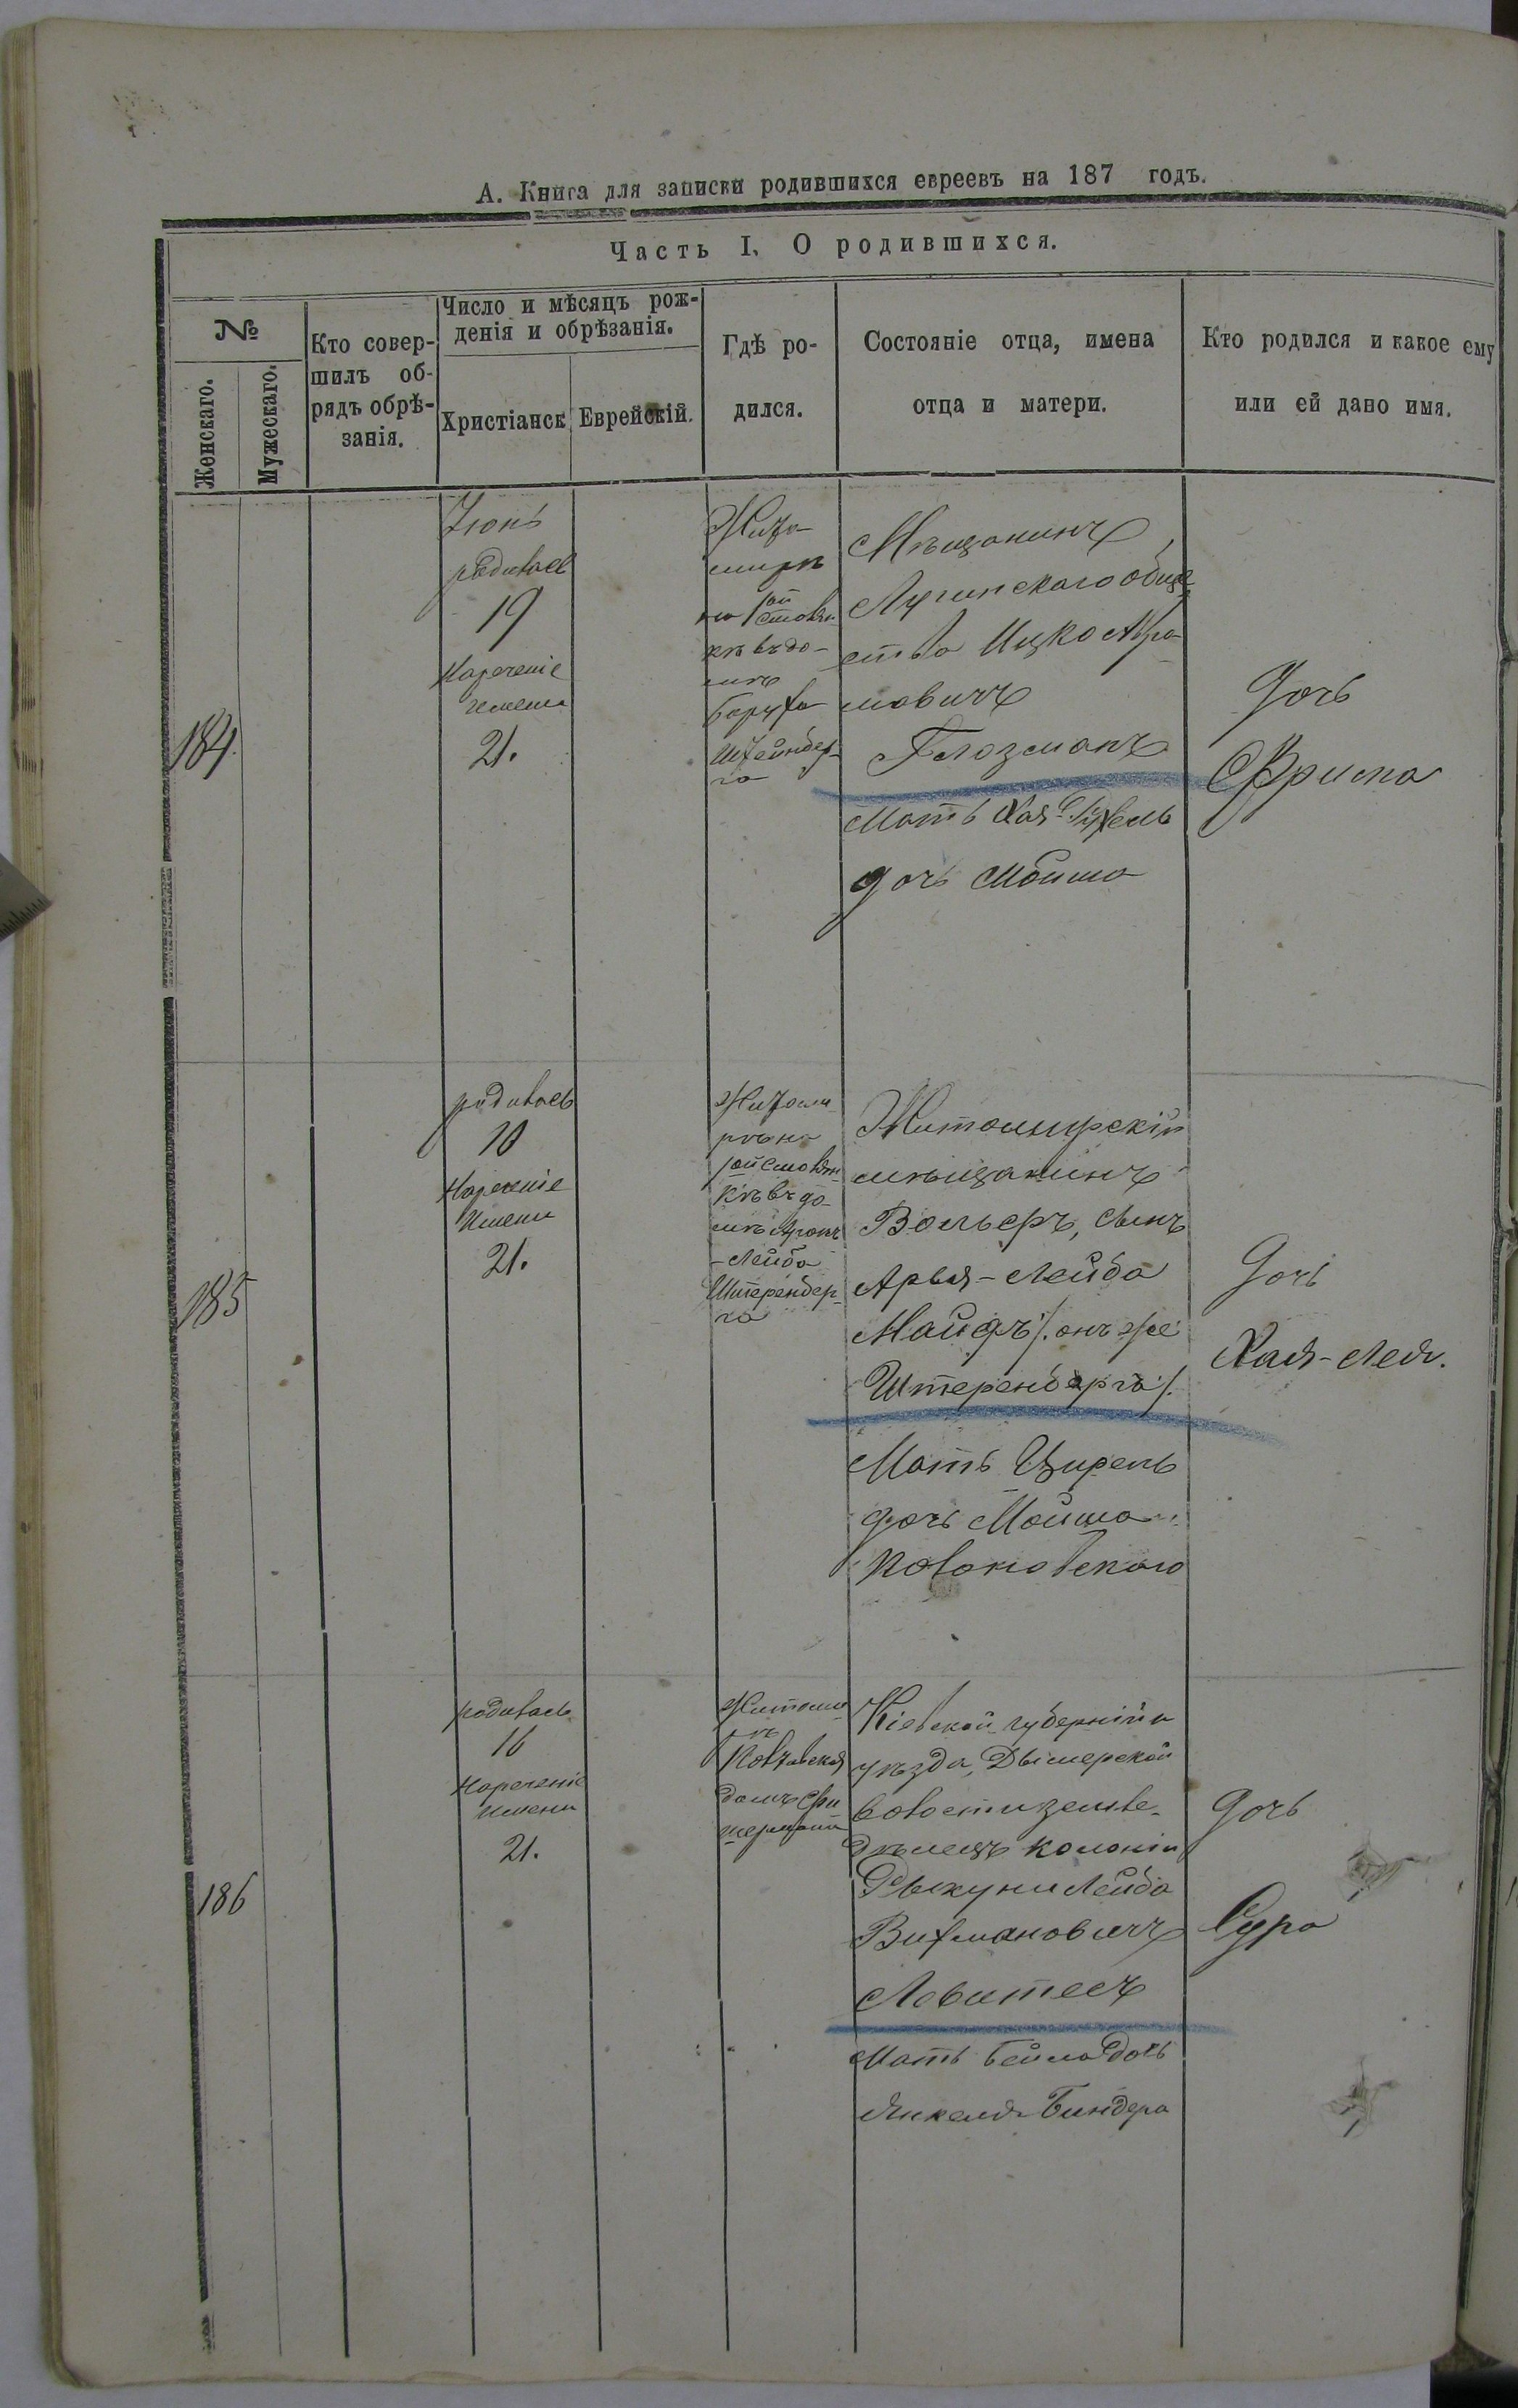 А. Книга для записки родившихся евреевъ на 187 годъ.
Часть I, О родившихся.
№
Женскаго.
Мужескаго.
Кто совер-
шилъ об-
рядъ обрѣ-
занія.
Число и мѣсяцъ рож-
денія и обрѣзанія.
Христіанск
Еврейскій.
Гдѣ ро-
дился.
Состояніе отца, имена
отца и матери.
Кто родился и какое ему
или ей дано имя.
184.
Іюнь
родилась
19
Нареченіе
имени
21.
Жито-
мирѣ
на 1ой
кѣ въ до-
мѣ
Баруха
Штейнбер-
га
Мѣщанинъ
Лугинскаго обще-
ства Ицко Абра-
мовичъ
Глозманъ
Мать Хая
дочь Мойша
Дочь
Фрима
185
родилась
18
Нареченіе
Имени
21.
Житоми-
рѣ на
1ой
кѣ въ до-
мѣ Аронъ
-Лейба
Штеренбер-
га
Житомирскій
мѣщанинъ
Вольеръ, сынъ
Арья-Лейба
Майдъ /. онъ же
Штеренбергъ /.
Мать Цирель
дочь Мойша
Дочь
Хая-Лея.
186
родилась
16
Нареченіе
имени
21.
Житоми-
рѣ
домъ
Кіевской губерніи и
уѣзда, Дымерской
волости земле-
дѣлецъ колоніи
Рыкуни Лейба
Вихмановичъ
Левитесъ
Мать Бейла дочь
Янкеля Биндера
Дочь
Сура